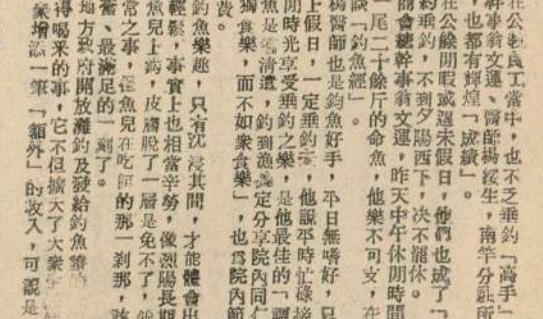 在公教員工當中,也不乏垂釣「高手」
幹事翁文運、醫師楊綏生,南竿分駐所
,也都有輝煌「成績」。
在公餘閒暇或週末假日,他們也成了「
約垂釣,不到夕陽西下,决不罷休。
商會總幹事翁文運,昨天中午休閒時間
一尾二十餘斤的命魚,他樂不可支,在
談「釣魚經」。
楊醫師也是釣魚好手,平日無嗜好,只
上假日,一定垂釣去,他說平時忙碌
閒時光享受垂釣之樂,是他最佳的「
魚是清遣,釣到漁定分享院內同仁
獨食樂,而不如衆食樂」,也爲院內節
費。
釣魚樂趣,只有沈浸其間,才能體會出
輕鬆,事實上也相當辛勞,像烈陽長期
魚兒上鈎,皮膚脫了一層是免不了,
常之事,但魚兒在吃餌的那一剎那,
奮、最滿足的一刻了。
地方政府開放灘釣及發給釣魚
得喝釆的事,它不但擴大了大衆
衆增添一筆「額外」的收入,可說是